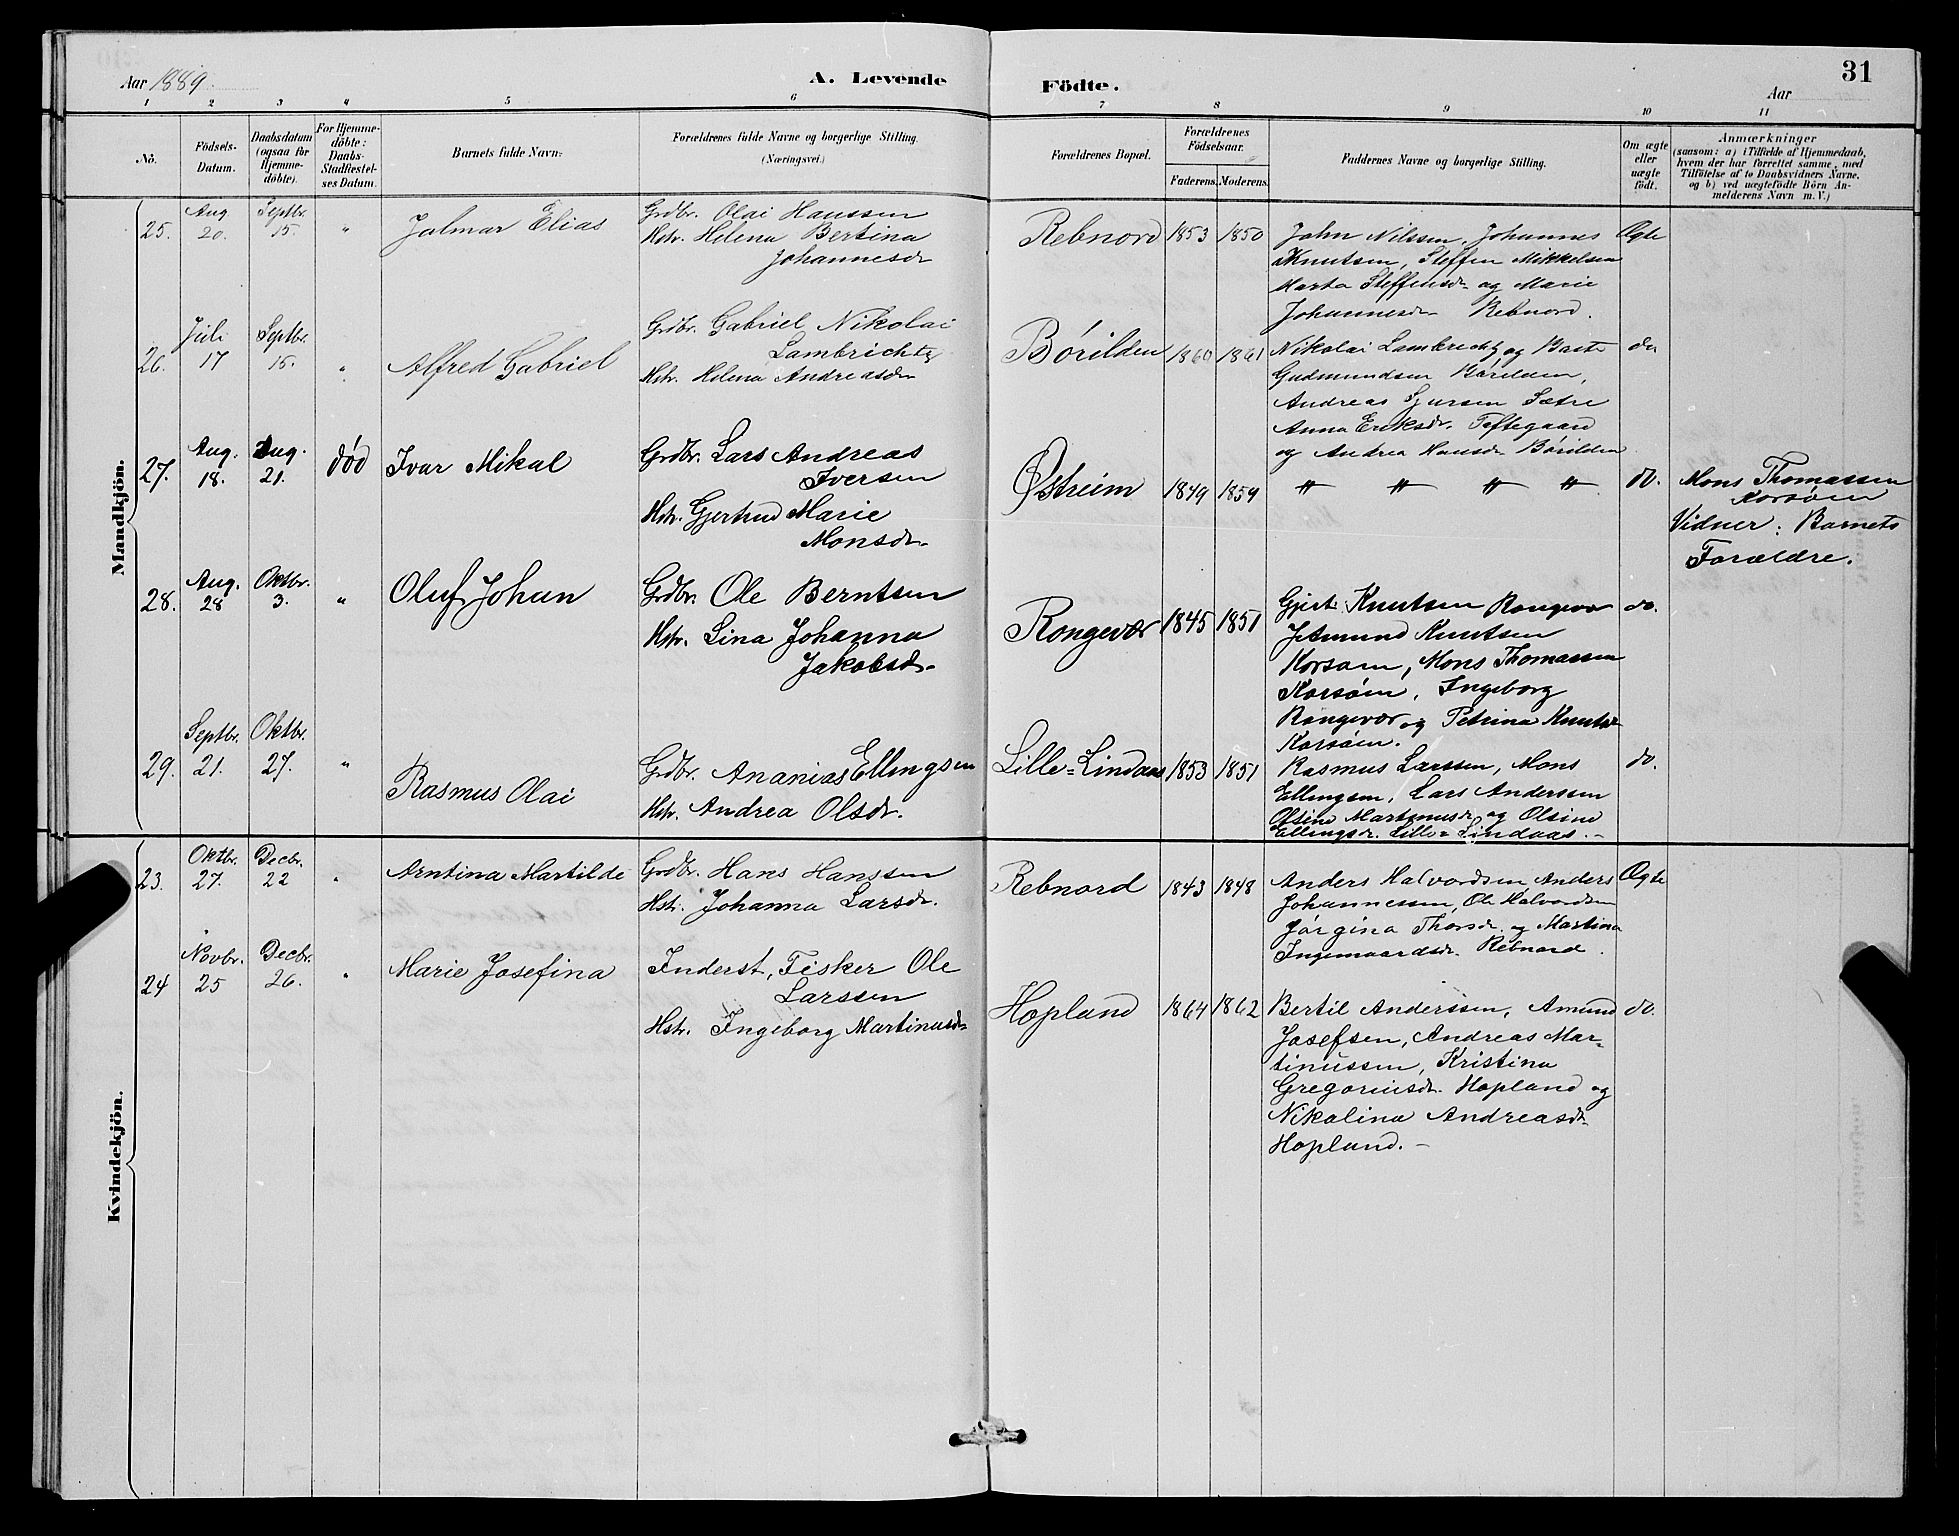 Aar 1889.
A. Levende
Födte.
31
Aar
1 2 3 4 5 6 7 8 9 10 11
No.
Födsels-Datum.
Daabsdatum (ogsaa for Hjemme-döbte).
For Hjemme-döbte: Daabs-Stadfæstel-ses Datum.
Barnets fulde Navn:
Forældrenes fulde Navne og borgerlige Stilling. (Næringsvei.)
Forældrenes Bopæl.
Forældrenes Födselsaar.
Faderens. Moderens.
Faddernes Navne og borgerlige Stilling.
Om ægte eller uægte födt.
Anmærkninger
(saasom: a) i Tilfælde af Hjemmedaab,
hvem der har forrettet samme, med
Tilföielse af to Daabsvidners Navne,
og b) ved uægtefödte Börn An-
melderens Navn m. V.)
Mandkjön.
25. Aug 20. Septbr. 15. " Jalmar Elias
Grdbr. Olai Hanssen
Hstr. Helena Bertina
Johannesdr
Rebnord 1853 1850
John Nilssen, Johannes
Knutsen, Steffen Mikkelsen
Marta Steffensdr og Marie
Johannesdr Rebnord.
Ægte
26. Juli 17 Septbr. 15. " Alfred Gabriel
Grdbr. Gabriel Nikolai
Lambrichts
Hstr. Helena Andreasdr
Børilden 1860 1861
Nikolai Lambrechts og
Gudmundsen Børilden,
Andreas Sjursen Sætre
Anna Eriksdr. Toftegaard
og Andrea Hansdr Børilden
do
27. Aug. 18. Aug. 21. død Ivar Mikal
Grdbr. Lars Andreas
Iversen
Hstr. Gjertrud Marie
Monsdr.
Østreim 1849 1859
" " " "
do.
Mons Thomassen
Korsøen
Vidner: Barnets
Forældre.
28. Aug. 28 Oktbr. 3. " Oluf Johan
Grdbr. Ole Berntsen
Hstr. Lina Johanna
Jakobsdr.
Rongevær 1845 1851
Gjert Knutsen Rongevær
Amund Knutsen
Korsøen, Mons Thomassen
Korsøen, Ingeborg
Rongevær og Petrina Knutsdr
Korsøen.
do.
29. Septbr. 21. Oktbr. 27. " Rasmus Olai
Grdbr. Ananias Ellingsen
Hstr. Andrea Olsdr.
Lille-Lindaas 1853 1851
Rasmus Larssen, Mons
Ellingsen, Lars Anderssen
Olsine Martinusdr og Olsine
Ellingsdr. Lille-Lindaas.
do.
Kvindekjön.
23. Oktbr. 27. Decbr. 22 " Arntina Martilde
Grdbr. Hans Hanssen
Hstr. Johanna Larsdr.
Rebnord 1843 1848
Anders Halvordsen, Anders
Johannessen, Ole Halvordsen
Jørgina Thorsdr. og Martina
Ingemaardsdr. Rebnord.
Ægte
24 Novbr. 25 Decbr. 26. " Marie Josefina
Inderst, Fisker Ole
Larssen
Hstr. Ingeborg Martinusdr
Hopland 1864 1862
Bertil Anderssen, Amund
Josefsen, Andreas Mar-
tinussen, Kristina
Gregoriusdr. Hopland og
Nikolina Andreasdr
Hopland.
do.